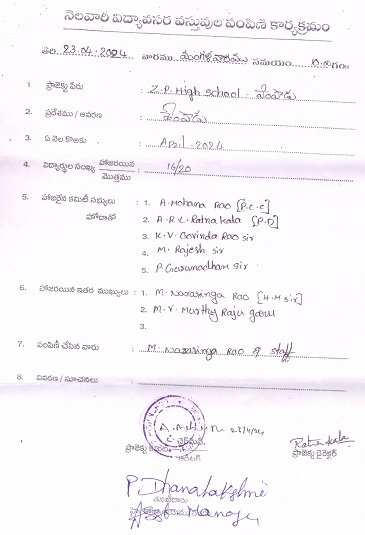 నెలవారీ విద్యావసర వస్తువుల పంపిణి కార్యక్రమం
తేది. 23.04.2024 వారము మంగళవారము సమయం
1. ప్రాజెక్టు పేరు : Z.P. High School - పేంపాడు
2. ప్రదేశము / ఆవరణ : పేంపాడు
3. ఏ నెల కొఱకు : April - 2024
4. విద్యార్థుల సంఖ్య హాజరయిన / మొత్తము : 16/20
5. హాజరైన కమిటీ సభ్యులు : 1. A. Mohana Rao [P.C.C]
హోదాతో 2. A.P.L. Ratna kala [P.D]
3. K.V. Govinda Rao Sir
4. M. Rajesh Sir
5. P. Gurunadham Sir
6. హాజరయిన ఇతర ముఖ్యులు : 1. M. Narasinga Rao [H.M Sir]
2. M.V. Murthy Raju garu
3.
7. పంపిణీ చేసిన వారు : M. Narasinga Rao & staff
8. వివరణ / సూచనలు :
23/4/24
ప్రాజెక్టు కమిటీ ఛైర్మన్
Ratna kala
ప్రాజెక్టు డైరెక్టర్
P. Dhanalakshmi
Manager